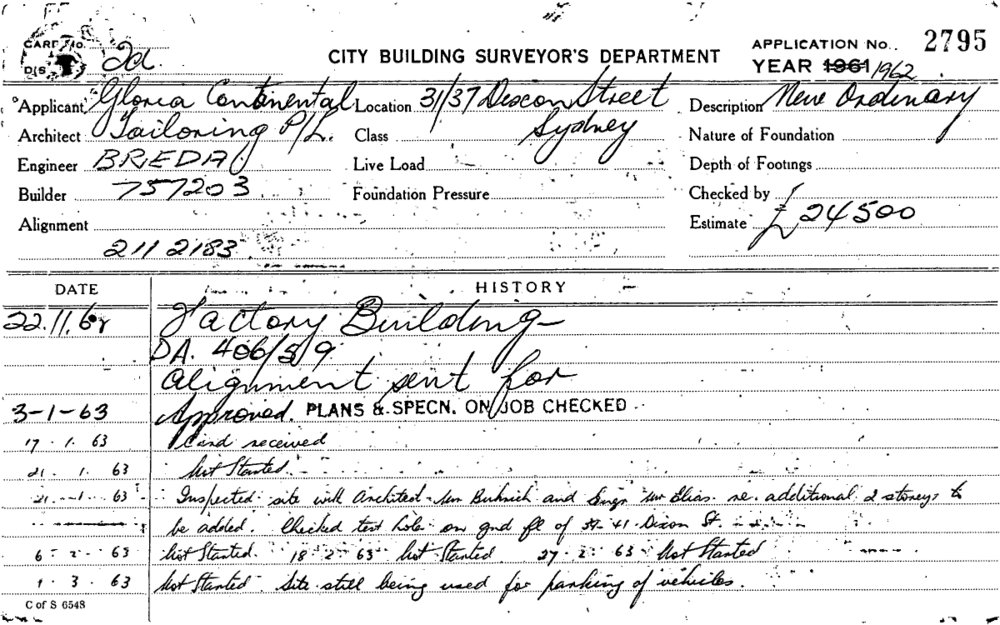 CARD No. 2d.
DIS
CITY BUILDING SURVEYOR'S DEPARTMENT
APPLICATION No. 2795
YEAR 1961 1962
Applicant Gloria Continental Location 31/37 Dixon Street Description New Ordinary
Architect Tailoring P/L. Class Sydney Nature of Foundation
Engineer BREDA Live Load Depth of Footings
Builder 757203 Foundation Pressure Checked by
Alignment Estimate £24500
211 2183
DATE HISTORY
22.11.62 Factory Building
DA. 406/59
Alignment sent for
3-1-63 Approved. PLANS & SPECN. ON JOB CHECKED
17 . 1. 63 Card received
21 . 1. 63 Not Started
21 . 1 . 63 Inspected site with Architect Mr and Engr Mr Elias re. additional 2 storeys to
be added. Checked test hole on gnd fl of 37-41 Dixon St.
6 - 2 - 63 Not Started. 18-2-63 Not Started 27-2-63 Not Started
1 . 3 . 63 Not Started. Site still being used for parking of vehicles.
C of S 6548